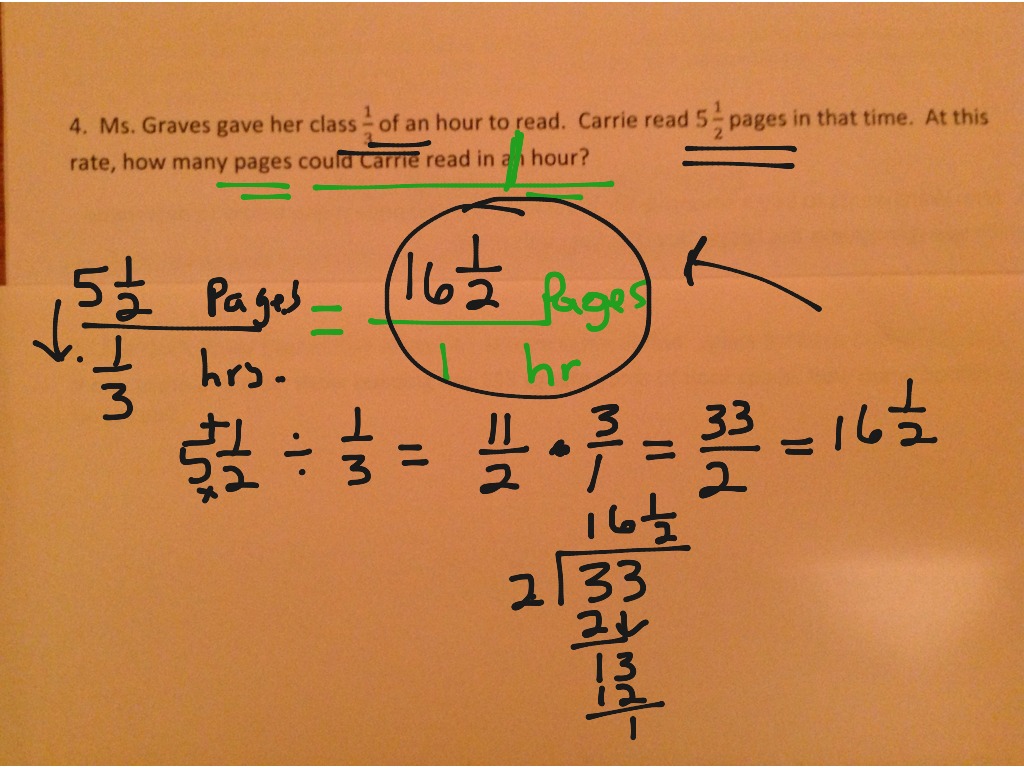 4. Ms. Graves gave her class 1/3 of an hour to read. Carrie read 5 1/2 pages in that time. At this
rate, how many pages could Carrie read in an hour?
1
5 1/2 Pages = 16 1/2 Pages
1/3 hrs. 1 hr
5 1/2 ÷ 1/3 = 11/2 • 3/1 = 33/2 = 16 1/2
+
×
16 1/2
2 33
2
13
12
1